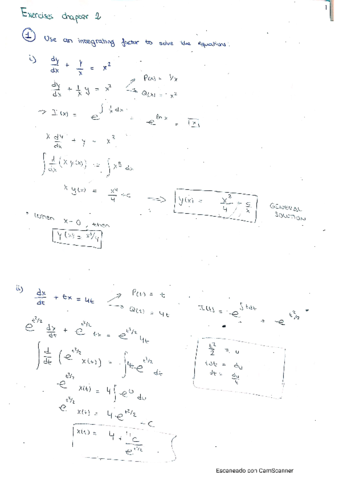 Exercises chapter 2
1
① Use an integrating factor to solve the equations.
i) dy/dx + y/x = x²
dy/dx + 1/x y = x² → P(x) = 1/x
→ Q(x) = x²
→ I(x) = e^∫ 1/x dx = e^lnx = |x|
x dy/dx + y = x³
∫ d/dx (x y(x)) = ∫ x³ dx
x y(x) = x⁴/4 - c → y(x) = x³/4 - c/x GENERAL SOLUTION
* When x = 0, then
y(x) = x³/4
ii) dx/dt + tx = 4t → P(t) = t
→ Q(t) = 4t
I(t) = e^∫t dt = e^t²/2
e^t²/2 dx/dt + e^t²/2 tx = e^t²/2 4t
∫ d/dt (e^t²/2 x(t)) = ∫ 4t e^t²/2 dt
t²/2 = u
t dt = du
dt = du/t
e^t²/2 x(t) = 4 ∫ e^u du
e^t²/2 x(t) = 4 e^t²/2 - C
x(t) = 4 + C/e^t²/2
Escaneado con CamScanner